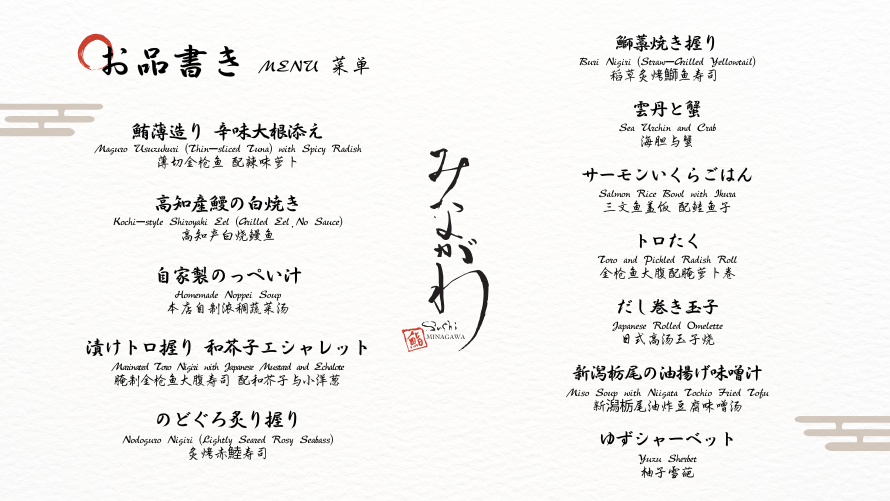 お品書き MENU 菜单
鮪薄造り 辛味大根添え
Maguro Usuzukuri (Thin-sliced Tuna) with Spicy Radish
薄切金枪鱼 配辣味萝卜
高知産鰻の白焼き
Kochi-style Shiroyaki Eel (Grilled Eel, No Sauce)
高知产白烧鳗鱼
自家製のっぺい汁
Homemade Noppei Soup
本店自制浓稠蔬菜汤
漬けトロ握り 和芥子エシャレット
Marinated Toro Nigiri with Japanese Mustard and Echalote
腌制金枪鱼大腹寿司 配和芥子与小洋葱
のどぐろ炙り握り
Nodoguro Nigiri (Lightly Seared Rosy Seabass)
炙烤赤鯥寿司
みながわ
Sushi
MINAGAWA
鮨
鰤藁焼き握り
Buri Nigiri (Straw-Grilled Yellowtail)
稻草炙烤鰤鱼寿司
雲丹と蟹
Sea Urchin and Crab
海胆与蟹
サーモンいくらごはん
Salmon Rice Bowl with Ikura
三文鱼盖饭 配鲑鱼子
トロたく
Toro and Pickled Radish Roll
金枪鱼大腹配腌萝卜卷
だし巻き玉子
Japanese Rolled Omelette
日式高汤玉子烧
新潟栃尾の油揚げ味噌汁
Miso Soup with Niigata Tochio Fried Tofu
新潟栃尾油炸豆腐味噌汤
ゆずシャーベット
Yuzu Sherbet
柚子雪葩